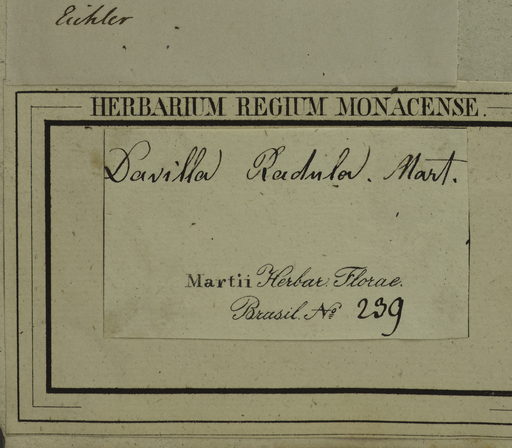 Eichler
HERBARIUM REGIUM MONACENSE.
Davilla Radula. Mart.
Martii Herbar: Florae.
Brasil. No 239